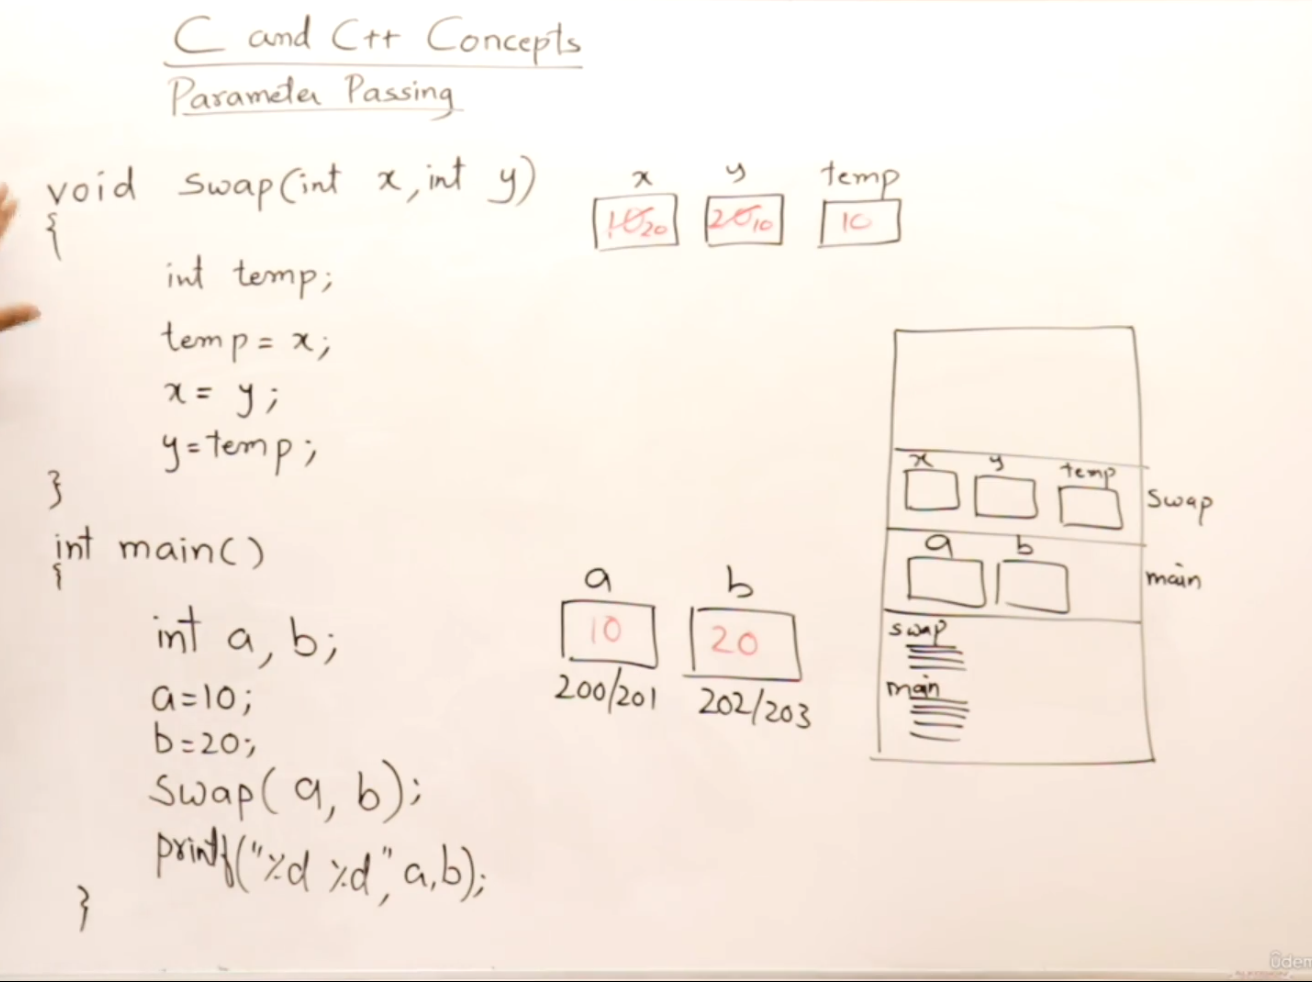 C and C++ Concepts
Parameter Passing
void swap(int x, int y)
{
int temp;
temp = x;
x = y;
y = temp;
}
int main()
{
int a, b;
a=10;
b=20;
swap( a, b);
printf("%d %d", a,b);
}
x y temp
10 20 20 10 10
a b
10 20
200/201 202/203
x y temp
swap
a b
main
swap
main